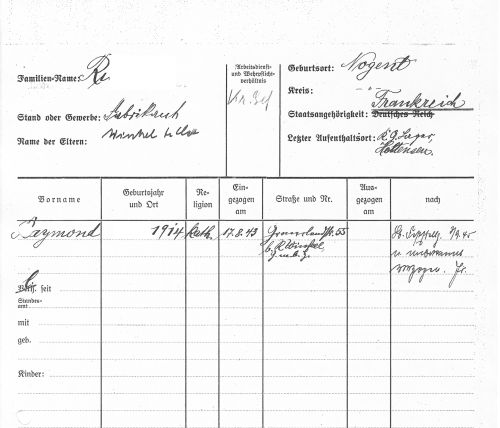 Familien-Name: Ri
Stand oder Gewerbe: Fabrikant
Name der Eltern: Winkel
Arbeitsdienst-
und Wehrpflicht-
verhältnis
Kr. Gef
Geburtsort: Nogent
Kreis:
Frankreich
Staatsangehörigkeit: Deutsches Reich
Letzter Aufenthaltsort: K. G. Lager,
Holtensen.
Vorname
Geburtsjahr
und Ort
Re-
ligion
Ein-
gezogen
am
Straße und Nr.
Aus-
gezogen
am
nach
Raymond 1914 kath. 17.8.43
b. R. Winkel
G.m.b.H.
u. unbekannt
verzogen. Fr.
Verh. seit
Standes-
amt:
mit
geb.
Kinder: